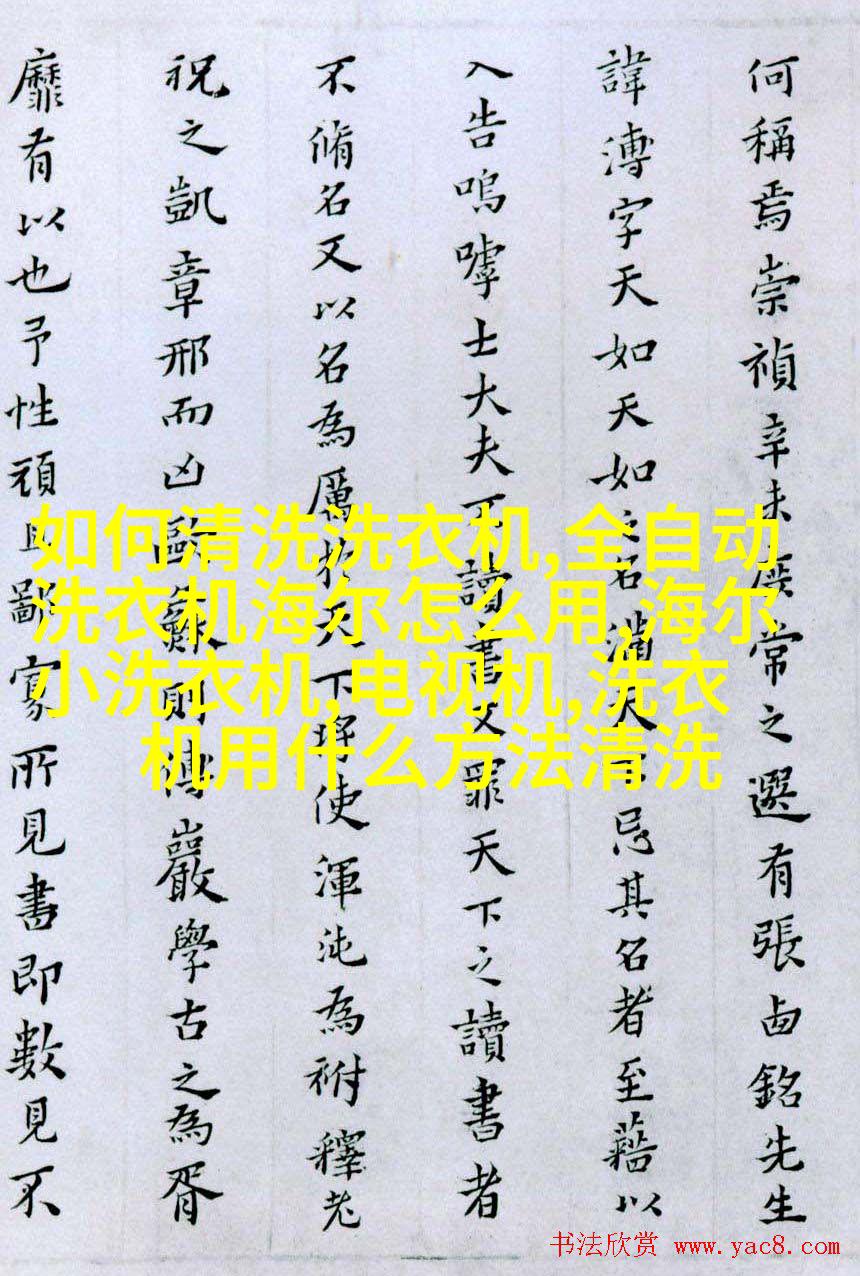 何稱焉崇禎辛未庶常之選有張卣銘先生
諱溥字天如天如之名滿天下忌其名者至藉以
入告嗚嘑士大夫不讀書又罪天下之讀書者
不脩名又以名為厲於天下將使渾沌為祔釋老
祝之凱章邢而凶歐蘇則傳巖學古之為胥
靡有以也予性頑且鄙寡所見書即數見不
如何清洗洗衣机,全自动
洗衣机海尔怎么用,海尔
小洗衣机,电视机,洗衣
机用什么方法清洗
书法欣赏 www.yac8.com